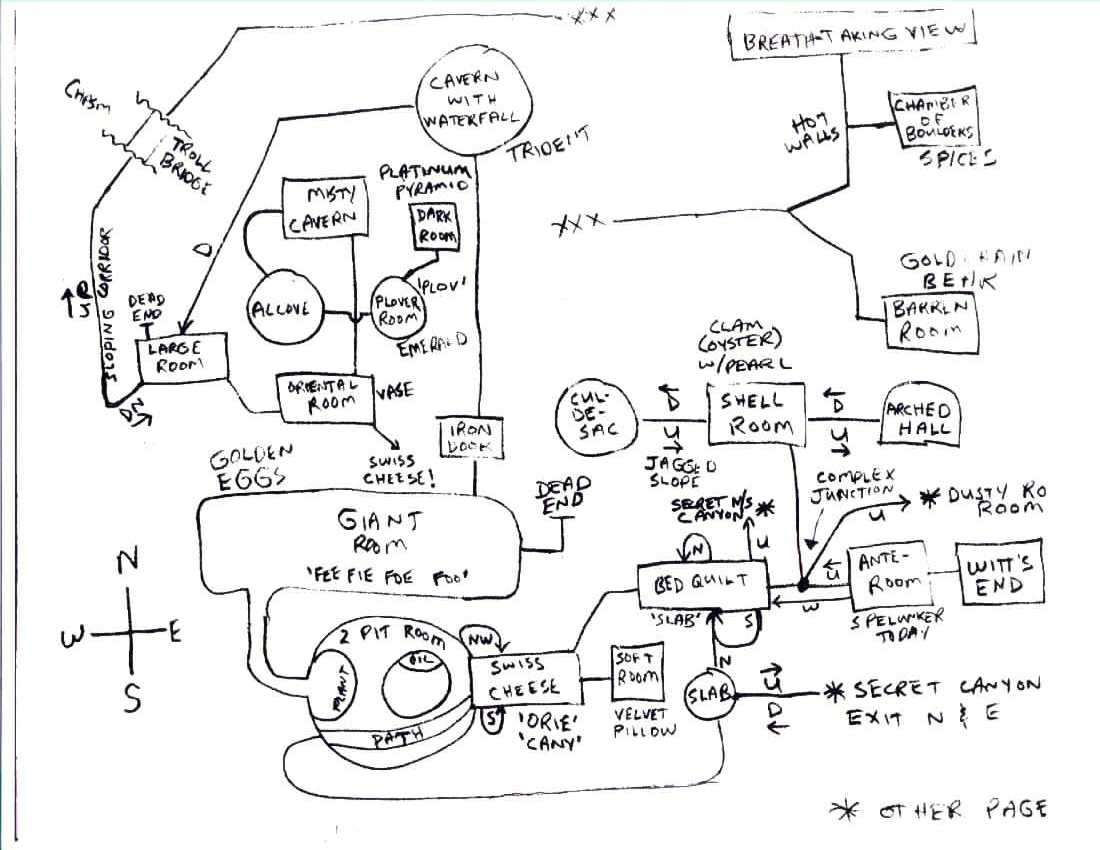 XXX
BREATH-TAKING VIEW
CHASM
TROLL
BRIDGE
CAVERN
WITH
WATERFALL
TRIDENT
HOT
WALLS
CHAMBER
OF
BOULDERS
SPICES
MISTY
CAVERN
PLATINUM
PYRAMID
DARK
ROOM
XXX
D
ALCOVE
PLOVER
ROOM
'PLOV'
EMERALD
BARREN
ROOM
UP
SLOPING CORRIDOR
DEAD
END
LARGE
ROOM
DN
ORIENTAL
ROOM
VASE
SWISS
CHEESE!
IRON
CLAM
(OYSTER)
W/PEARL
CUL-
DE-
SAC
D
U
JAGGED
SLOPE
SHELL
ROOM
D
U
ARCHED
HALL
GOLDEN
EGGS
GIANT
ROOM
'FEE FIE FOE FOO'
DEAD
END
SECRET N/S
CANYON *
U
COMPLEX
JUNCTION
U
* DUSTY RO
ROOM
N
BED QUILT
'SLAB'
S
U
W
ANTE-
ROOM
SPELUNKER
TODAY
WITT'S
END
N
W E
S
2 PIT ROOM
PLANT
OIL
PATH
NW
SWISS
CHEESE
S
'ORIE'
'CANY'
SOFT
ROOM
VELVET
PILLOW
N
SLAB
U
D
* SECRET CANYON
EXIT N & E
* OTHER PAGE